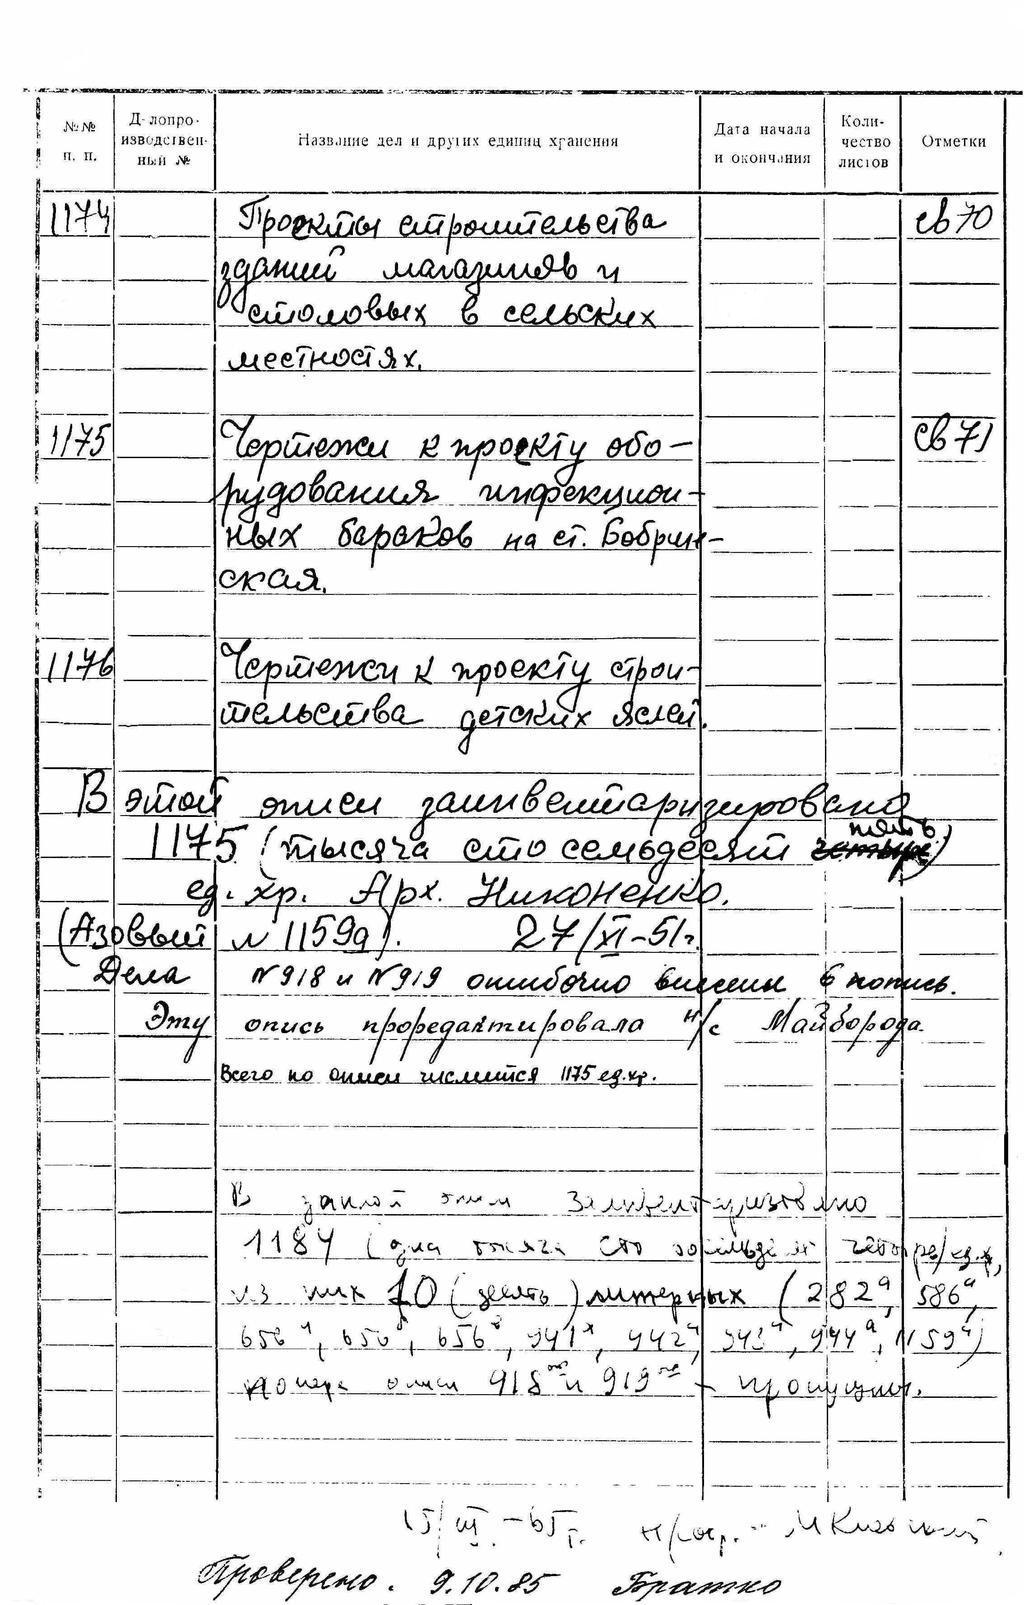 №№ п. п.
Д-лопро-изводствен-ный №
Название дел и других единиц хранения
Дата начала и окончания
Коли-чество листов
Отметки
1174 Проекты строительства св 70
зданий магазинов и
столовых в сельских
местностях.
1175 Чертежи к проекту обо- св 71
рудования инфекцион-
ных бараков на ст. Бобрин-
ская.
1176 Чертежи к проекту строи-
тельства детских яслей.
В этой описи заинвентаризировано
1175 (тысяча сто семьдесят четыре пять)
ед. хр. Арх. Никоненко.
(Азовый № 1159а). 27/XI-51г.
Дела №918 и №919 ошибочно внесены в опись.
Эту опись проредактировала н/с Майборода
Всего по описи числится 1175 ед. хр.
В данной описи
1184 ( сто восемьдесят четыре/ед.х,
из них 10 (десять) литерных (282а, 586а,
656а, 656, 941, 942, 943, 944а, 1159а)
номера описи 918 и 919 - пропущены.
15/III-65г.
Проверено. 9.10.85 Братко